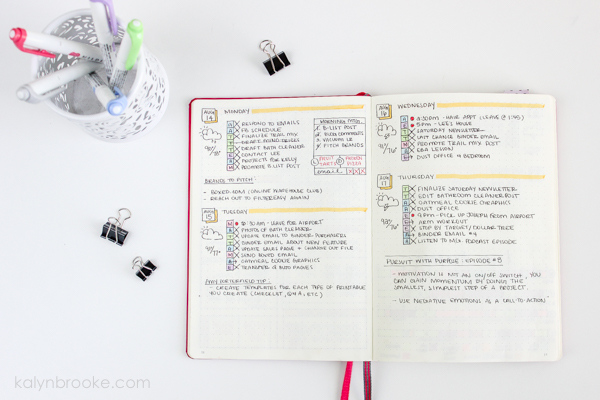 AUG 14
MONDAY
RESPOND TO EMAILS
FB SCHEDULE
FINALIZE TRAIL MIX
DRAFT BATH CLEANER
CONTACT LEE
PROJECTS FOR KELLY
PROMOTE B-LIST POST
MORNING PAGE
1. B-LIST POST
2. BLOG COMMENTS
4. PITCH BRANDS
email XXX
BRANDS TO PITCH:
- BOXED.COM (ONLINE WAREHOUSE CLUB)
- REACH OUT TO FILTEREASY AGAIN
15
TUESDAY
10:30AM - LEAVE FOR AIRPORT
PHOTOS OF BATH CLEANER
UPDATE EMAIL TO BINDER PURCHASERS
BINDER EMAIL ABOUT NEW FEATURE
UPDATE SALES PAGE + CHANGE OUT FILE
SEND BOARD EMAIL
OATMEAL COOKIE GRAPHICS
TRANSFER 2 BUJO PAGES
TIP:
- CREATE TEMPLATES FOR EACH TYPE OF PRINTABLE
YOU CREATE (CHECKLIST, Q&A, ETC)
AUG 16
WEDNESDAY
- HAIR APPT (LEAVE @ 1:45)
5PM - LEE'S HOUSE
SATURDAY NEWSLETTER
LAST CHANCE BINDER EMAIL
PROMOTE TRAIL MIX POST
DUST OFFICE + BEDROOM
AUG 17
THURSDAY
FINALIZE SATURDAY NEWSLETTER
EDIT BATHROOM CLEANER POST
OATMEAL COOKIE GRAPHICS
DUST OFFICE
9PM - PICK UP JOSEPH FROM AIRPORT
ARM WORKOUT
STOP BY TARGET/DOLLAR TREE
BINDER EMAIL #4
LISTEN TO MLK PODCAST EPISODE
PURSUIT WITH PURPOSE: EPISODE #8
- MOTIVATION IS NOT AN ON/OFF SWITCH. YOU
CAN GAIN MOMENTUM BY DOING THE
SMALLEST, SIMPLEST STEP OF A PROJECT.
- USE NEGATIVE EMOTIONS AS A CALL-TO-ACTION
kalynbrooke.com